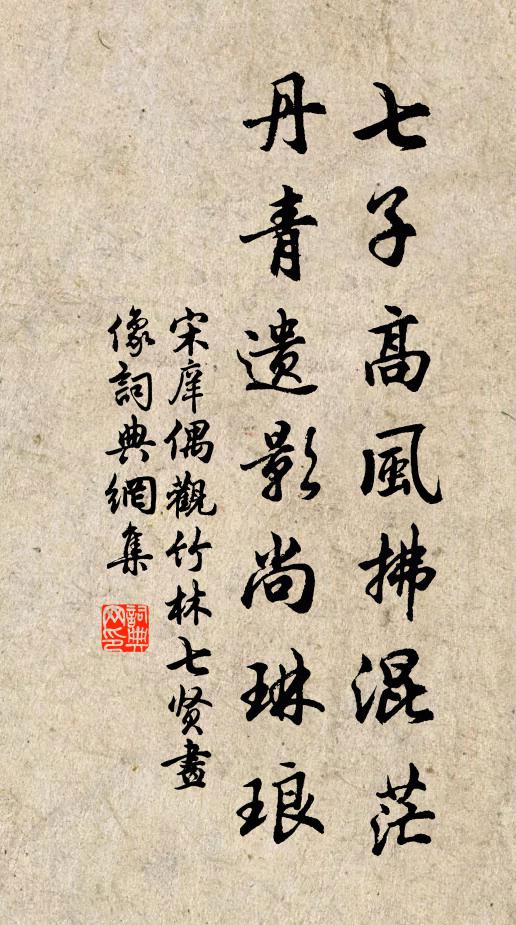 七子高風拂混茫
丹青遺影尚琳琅
宋庠偶觀竹林七贤畫
像詞典網集
詞典
网印